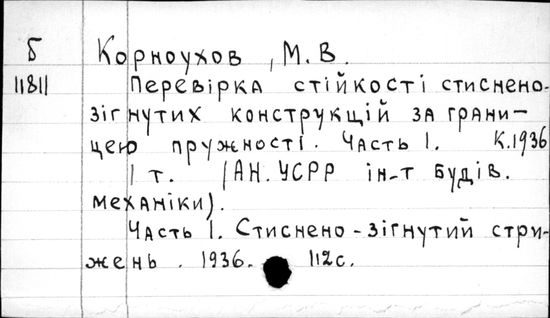 Б Корноухов, М. В.
11811 Перевірка стійкості стиснено-
зігнутих конструкцій за грани-
цею пружності. Часть I. К. 1936
1 т. (АН. УСРР ін-т будів.
механіки).
Часть I. Стиснено-зігнутий стри-
жень. 1936. 112 с.